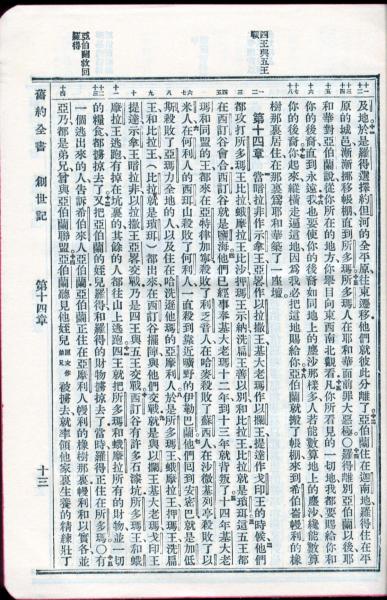 四王與五王
戰
亞伯蘭救回
羅得
及地於是羅得選擇約但河的全平原往東遷移他們就彼此分離了亞伯蘭住在迦南地羅得住在平
原的城邑漸漸挪移帳棚直到所多瑪所多瑪人在耶和華面前罪大惡極〇羅得離別亞伯蘭以後耶
和華對亞伯蘭說從你所在的地方你舉目向東西南北觀看凡你所看見的一切地我都要賜給你和
你的後裔直到永遠我也要使你的後裔如同地上的塵沙那樣多人若能數算地上的塵沙纔能數算
你的後裔你起來縱橫走遍這地因為我必把這地賜給你亞伯蘭就搬了帳棚來到希伯崙幔利的橡
樹那裏居住在那裏為耶和華築了一座壇
第十四章 當暗拉非作示拿王亞畧作以拉撒王基大老瑪作以攔王提達作戈印王的時候他們
都攻打所多瑪王比拉蛾摩拉王比沙押瑪王示納洗扁王善以別和比拉王比拉就是瑣珥這五王都
在西訂谷會合西訂谷就是鹽海他們已經事奉基大老瑪十二年到十三年就背叛了十四年基大老
瑪和同盟的王都來在亞特律加寧殺敗了利乏音人在哈麥殺敗了蘇西人在沙微基列亭殺敗了以
米人在何利人的西珥山殺敗了何利人一直殺到靠近曠野的伊勒巴蘭他們回到安密巴就是加低
斯殺敗了亞瑪力全地的人以及住在哈洗遜他瑪的亞摩利人於是所多瑪王蛾摩拉王押瑪王洗扁
王和比拉王比拉就是瑣珥都出來在西訂谷擺陣與他們交戰就是與以攔王基大老瑪戈印王
提達示拿王暗拉非以拉撒王亞畧交戰乃是四王與五王交戰西訂谷有許多石漆坑所多瑪王和蛾
摩拉王逃跑有掉在坑裏的其餘的人都往山上逃跑四王就把所多瑪和蛾摩拉所有的財物並一切
的糧食都擄掠去了又把亞伯蘭的姪兒羅得和羅得的財物擄掠去了當時羅得正住在所多瑪〇有
一個逃出來的人告訴希伯來人亞伯蘭亞伯蘭正住在亞摩利人幔利的橡樹那裏幔利和以實各並
亞乃都是弟兄曾與亞伯蘭聯盟亞伯蘭聽見他姪兒被擄去就率領他家裏生養的精練壯丁
舊約全書 創世記 第十四章 十三